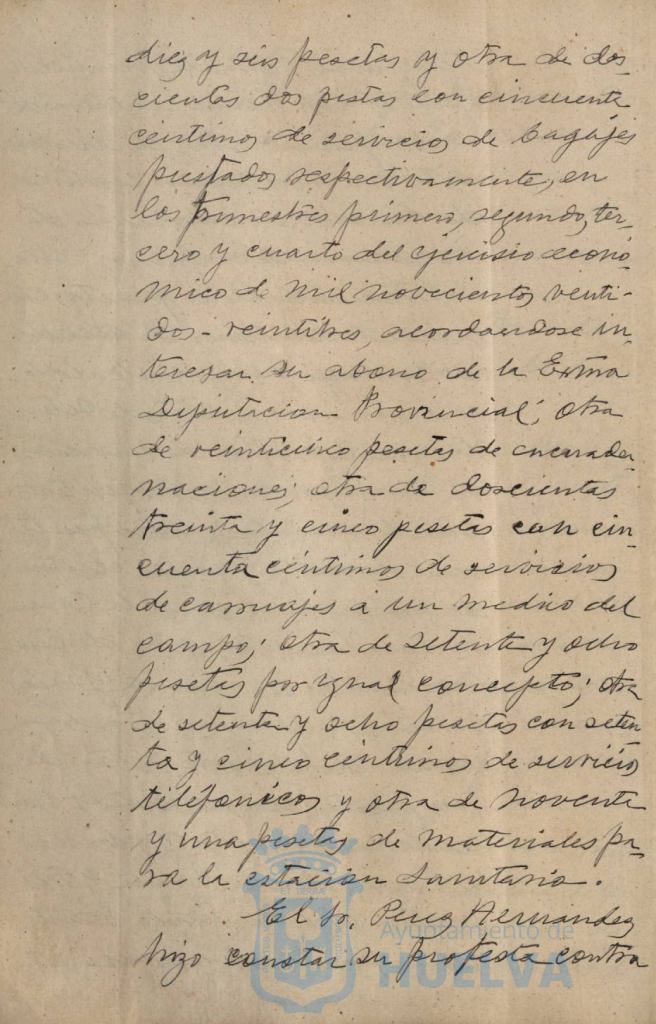 diez y seis pesetas y otra de dos
cientas dos pestas con cincuenta
centimos de servicios de bagajes
prestados respectivamente, en
los trimestres primero, segundo, ter-
cero y cuarto del ejercisio econo-
mico de mil novecientos venti-
dos - veintitres, acordandose in-
teresar su abono de la Exma
Diputacion Provincial; otra
de veinticinco pesetas de encuader-
naciones; otra de doscientas
treinta y cinco pesetas con cin-
cuenta centimos de servicios
de carruajes a un medico del
campo; otra de setenta y ocho
pesetas por igual concepto; otra
de setenta y ocho pesetas con seten
ta y cinco centimos de servicio
telefonicos y otra de noventa
y una pesetas de materiales pa-
ra la estacion Sanitaria.
El Sr. Perez Hernandez
hizo constar su protesta contra
Ayuntamiento de
HUELVA